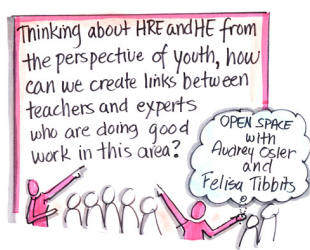 Thinking about HRE and HE from
the perspective of youth, how
can we create links between
teachers and experts
who are doing good
work in this area?
OPEN SPACE
with
Audrey Osler
and
Felisa Tibbits